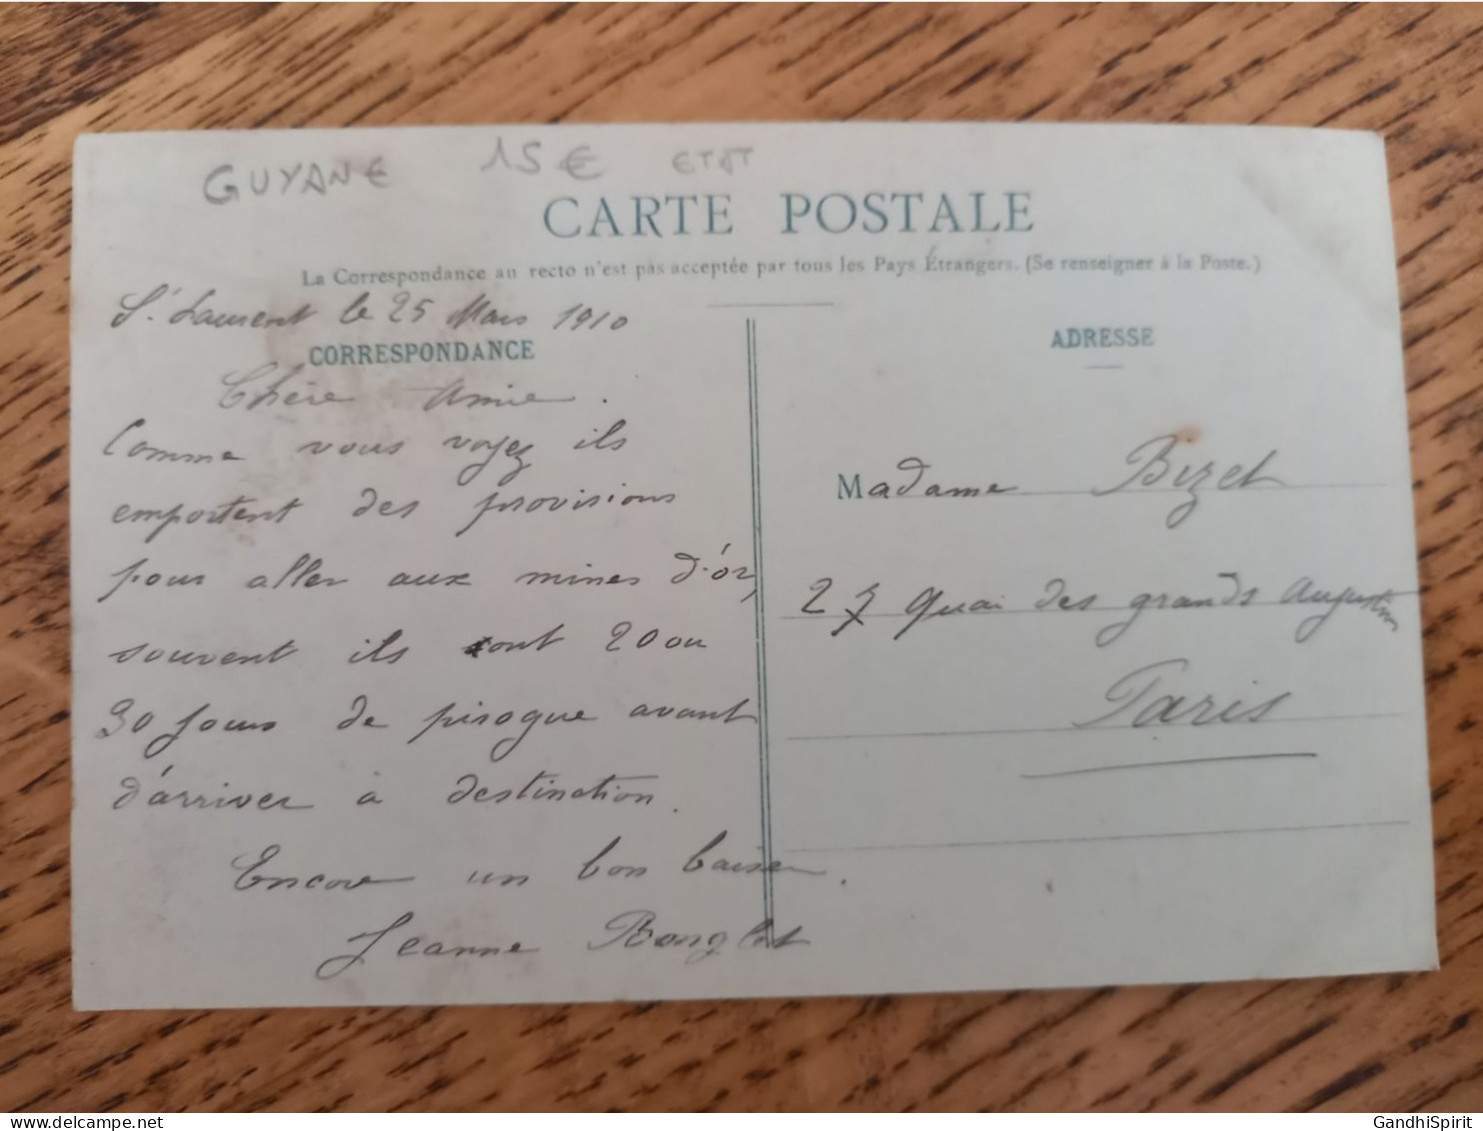 GUYANE 15€ ETAT
CARTE POSTALE
La Correspondance au recto n'est pas acceptée par tous les Pays Étrangers. (Se renseigner à la Poste.)
St Laurent le 25 Mars 1910
CORRESPONDANCE
Chère Amie.
Comme vous voyez ils
emportent des provisions
pour aller aux mines d'or,
souvent ils sont 20 ou
30 jours de pirogue avant
d'arriver à destination.
Encore un bon baiser.
Jeanne
ADRESSE
Madame Bizet
27 Quai des grands Augustins
Paris
delcampe.net
GandhiSpirit